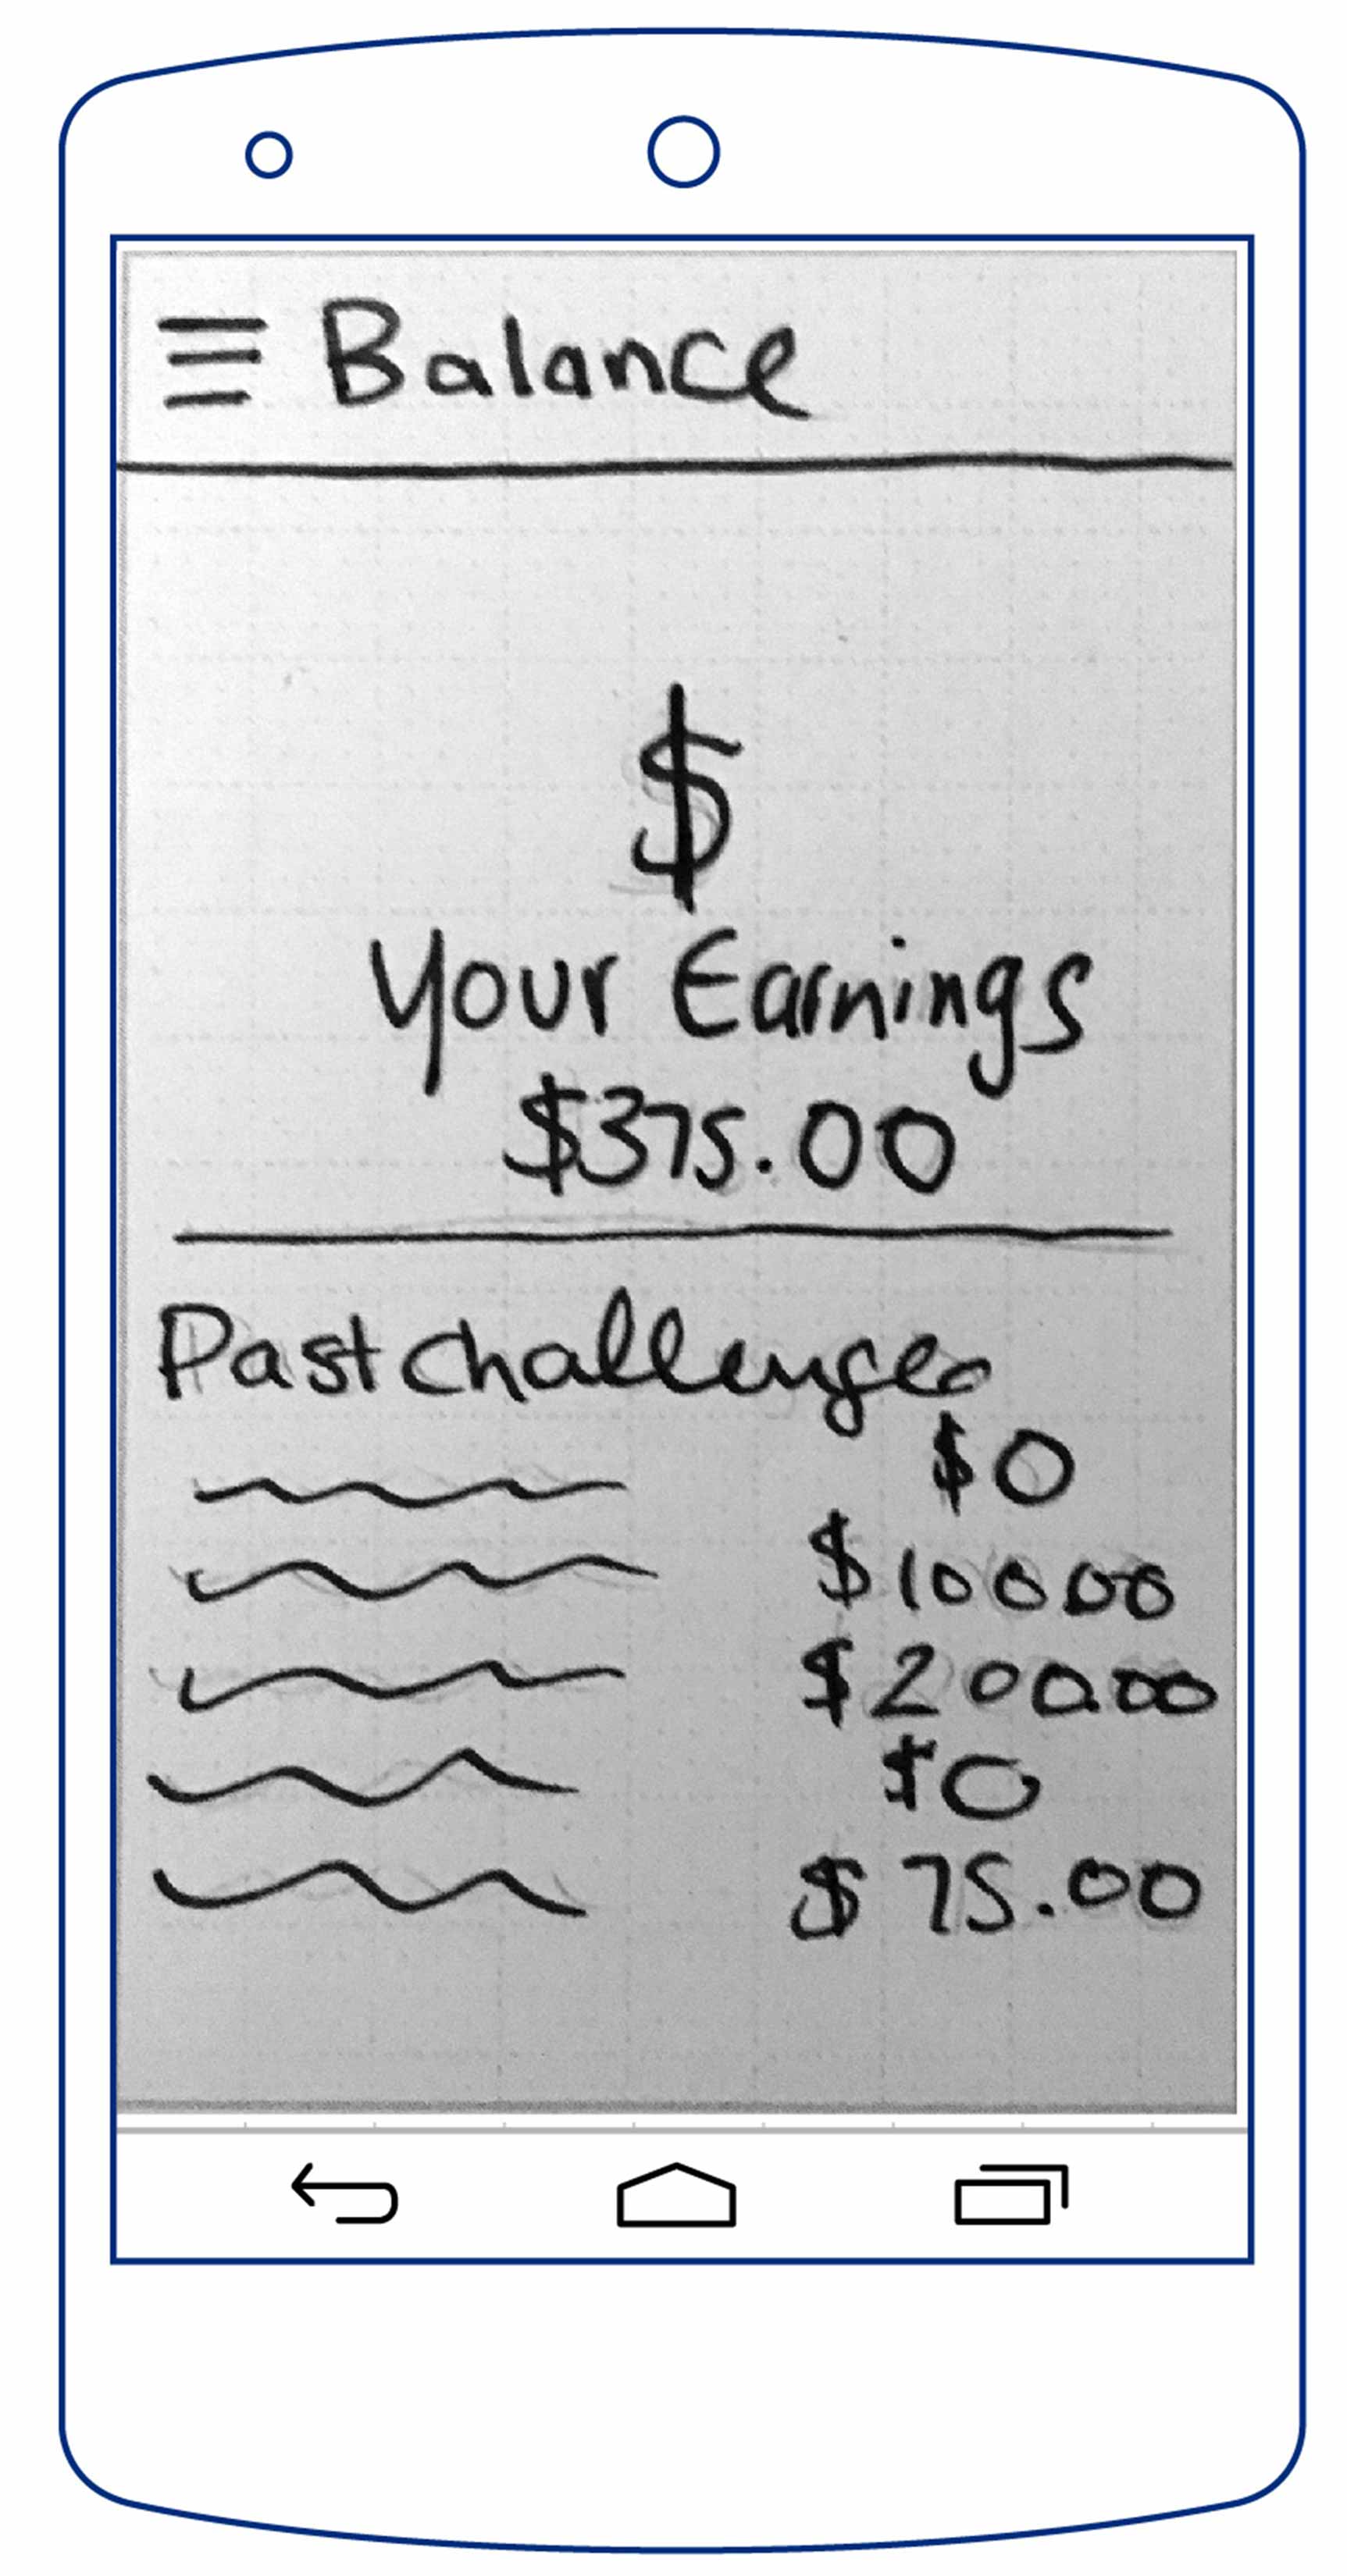 Balance
$
Your Earnings
$375.00
Past challenges
$0
$100.00
$200.00
$0
$75.00